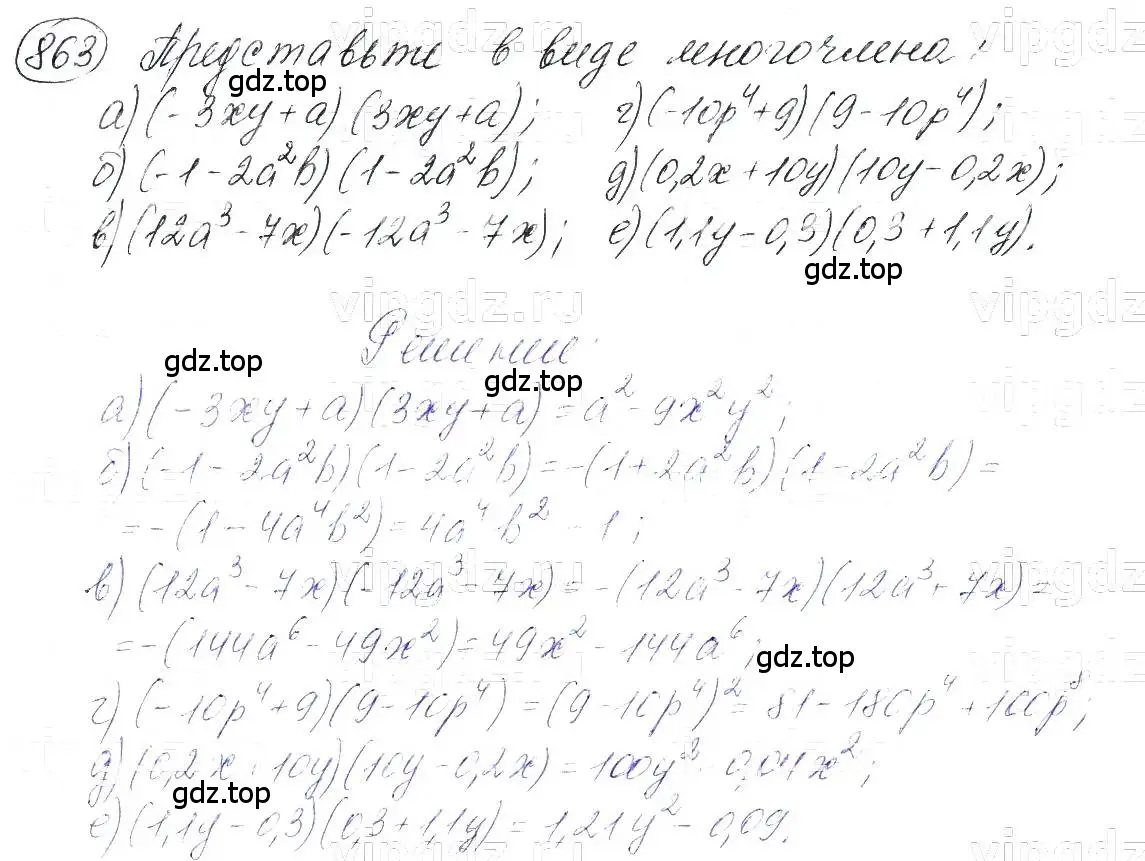 863 Представьте в виде многочлена:
gdz.top
а) (-3xy + a)(3xy + a); г) (-10p⁴ + 9)(9 - 10p⁴);
б) (-1 - 2a²b)(1 - 2a²b); д) (0,2x + 10y)(10y - 0,2x);
в) (12a³ - 7x)(-12a³ - 7x); е) (1,1y - 0,3)(0,3 + 1,1y).
gdz.top
vipgdz.ru
Решение:
gdz.top
gdz.top
а) (-3xy + a)(3xy + a) = a² - 9x²y²;
б) (-1 - 2a²b)(1 - 2a²b) = -(1 + 2a²b)(1 - 2a²b) =
= -(1 - 4a⁴b²) = 4a⁴b² - 1;
в) (12a³ - 7x)(-12a³ - 7x) = -(12a³ - 7x)(12a³ + 7x) =
= -(144a⁶ - 49x²) = 49x² - 144a⁶;
gdz.top
г) (-10p⁴ + 9)(9 - 10p⁴) = (9 - 10p⁴)² = 81 - 180p⁴ + 100p⁸;
д) (0,2x + 10y)(10y - 0,2x) = 100y² - 0,04x²;
gdz.top
е) (1,1y - 0,3)(0,3 + 1,1y) = 1,21y² - 0,09.